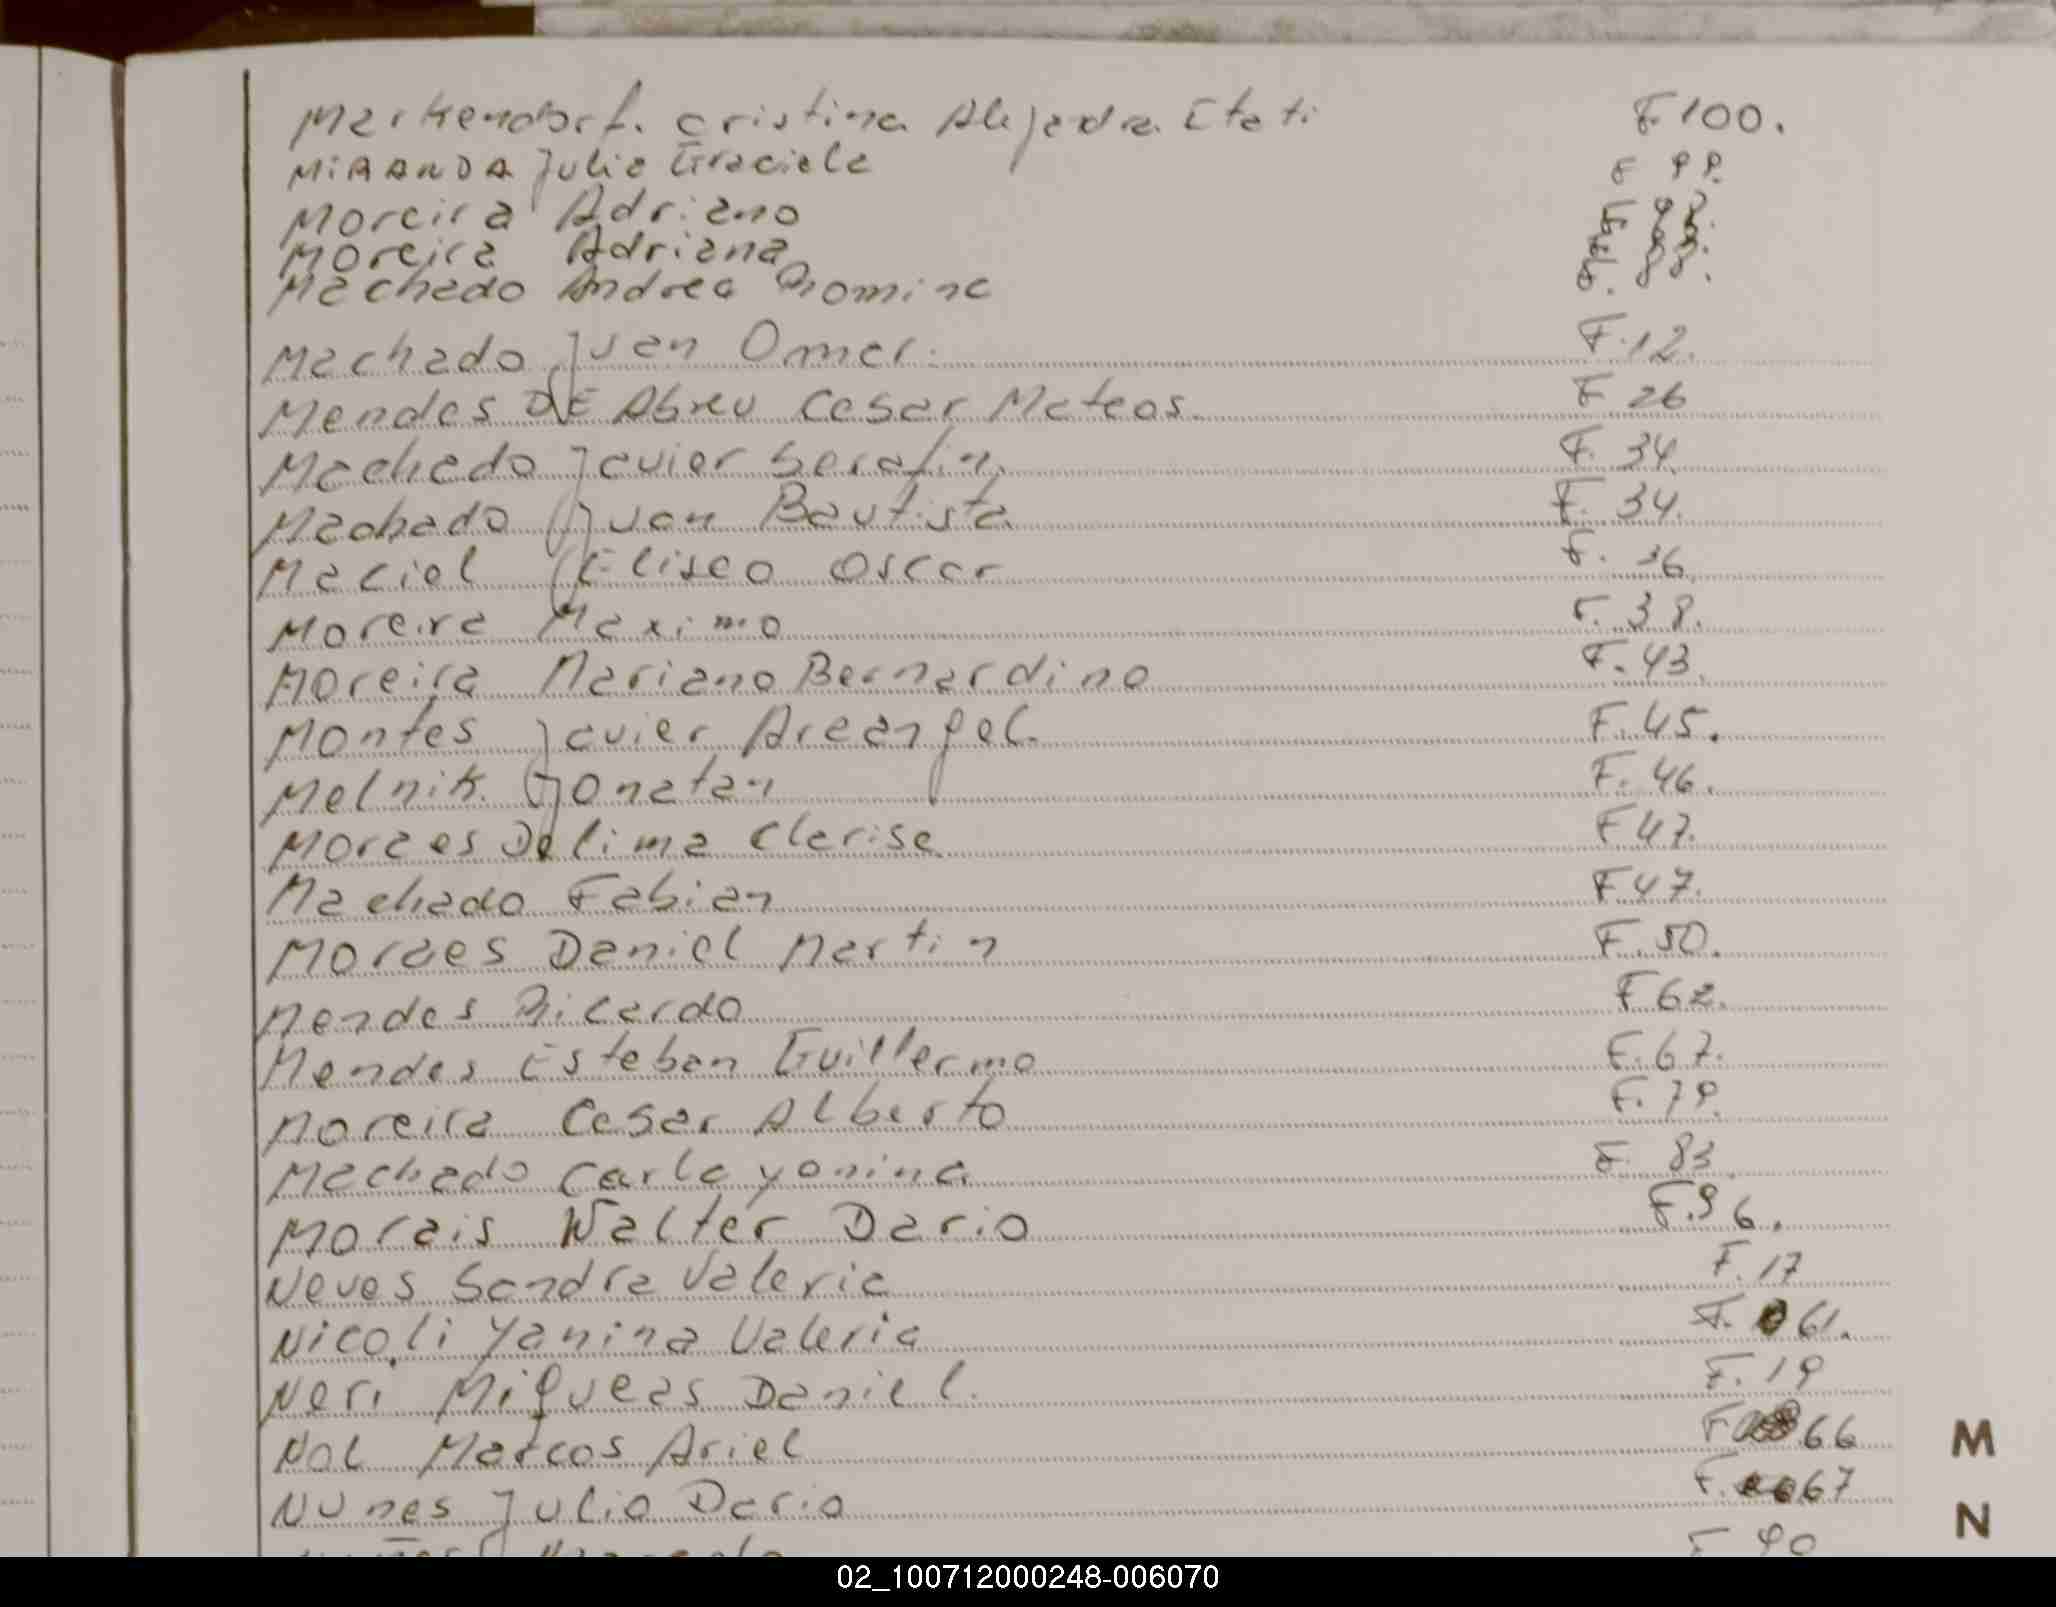 Markendorf. Cristina Alejandra Itati F 100.
MIRANDA Julia Graciela F 99.
Moreira Adriano F 98.
Moreira Adriana F 88.
Machado Andrea Romina F. 88.
Machado Juan Omar. F.12.
Mendes DE Abreu Cesar Mateos. F 26
Machado Javier Serafin. F. 34.
Machado Juan Bautista F. 34.
Maciel Eliseo Oscar F. 36.
Moreira Maximo F. 38.
Moreira Mariano Bernardino F. 43.
Montes Javier Arcangel. F. 45.
Melnik. Jonatan F. 46.
Moraes Delima Clarisa F 47.
Machado Fabian F 47.
Moraes Daniel Martin F. 50.
Mendes Ricardo F 62.
Mendes Esteban Guillermo F. 67.
Moreira Cesar Alberto F. 79.
Machado Carla yonina F. 83.
Morais Walter Dario F. 96.
Neves Sandra Valeria F. 17
Nicoli Yanina Valeria F. 61.
Neri Miqueas Daniel. F. 19
Nol Marcos Ariel F 66
M
Nunes Julio Dario F. 67
N
F 90
02_100712000248-006070